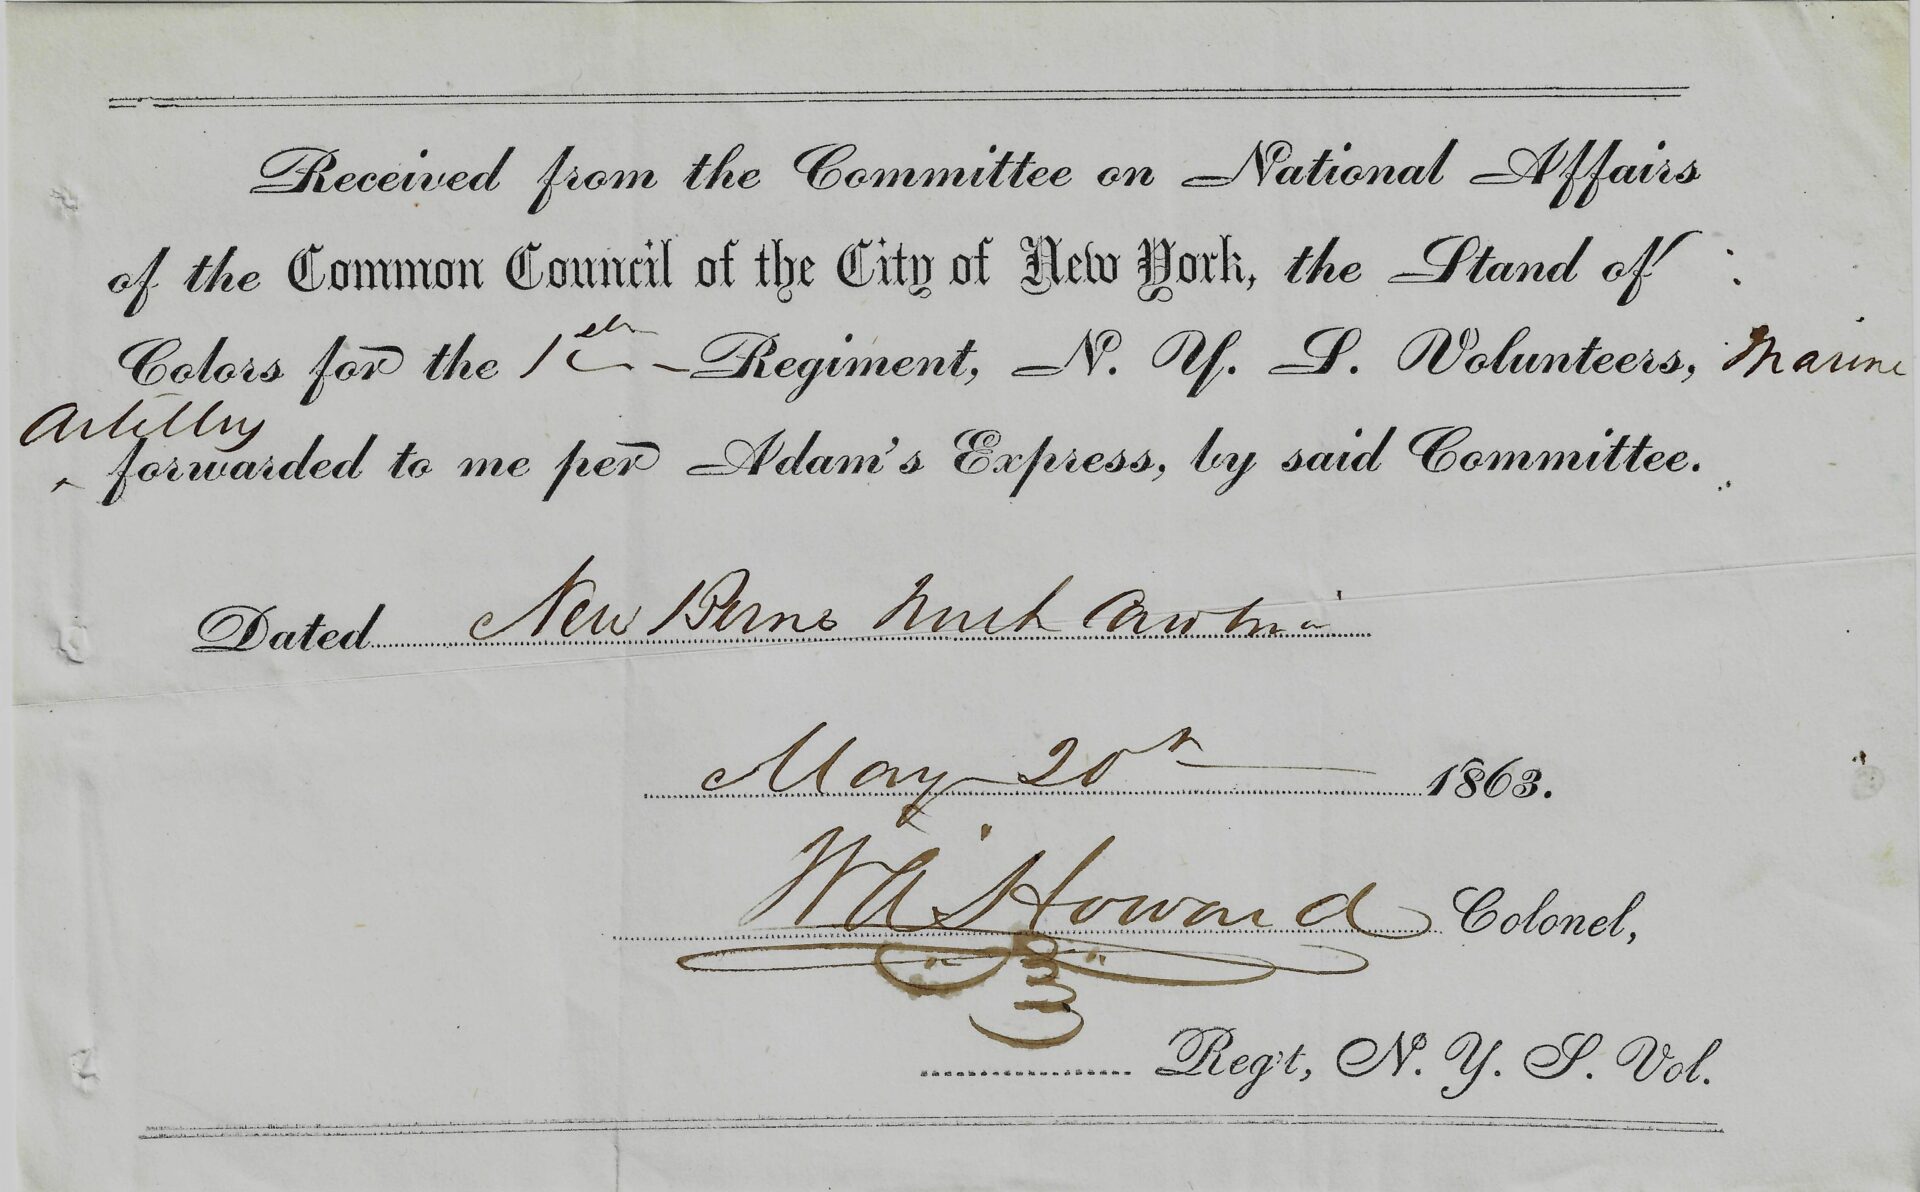 Received from the Committee on National Affairs
of the Common Council of the City of New York, the Stand of
Colors for the 1st Regiment, N. Y. S. Volunteers, Marine
Artillery
forwarded to me per Adam's Express, by said Committee.
Dated New Berne North Carolina
May 20th 1863.
W A Howard Colonel,
Reg't, N. Y. S. Vol.